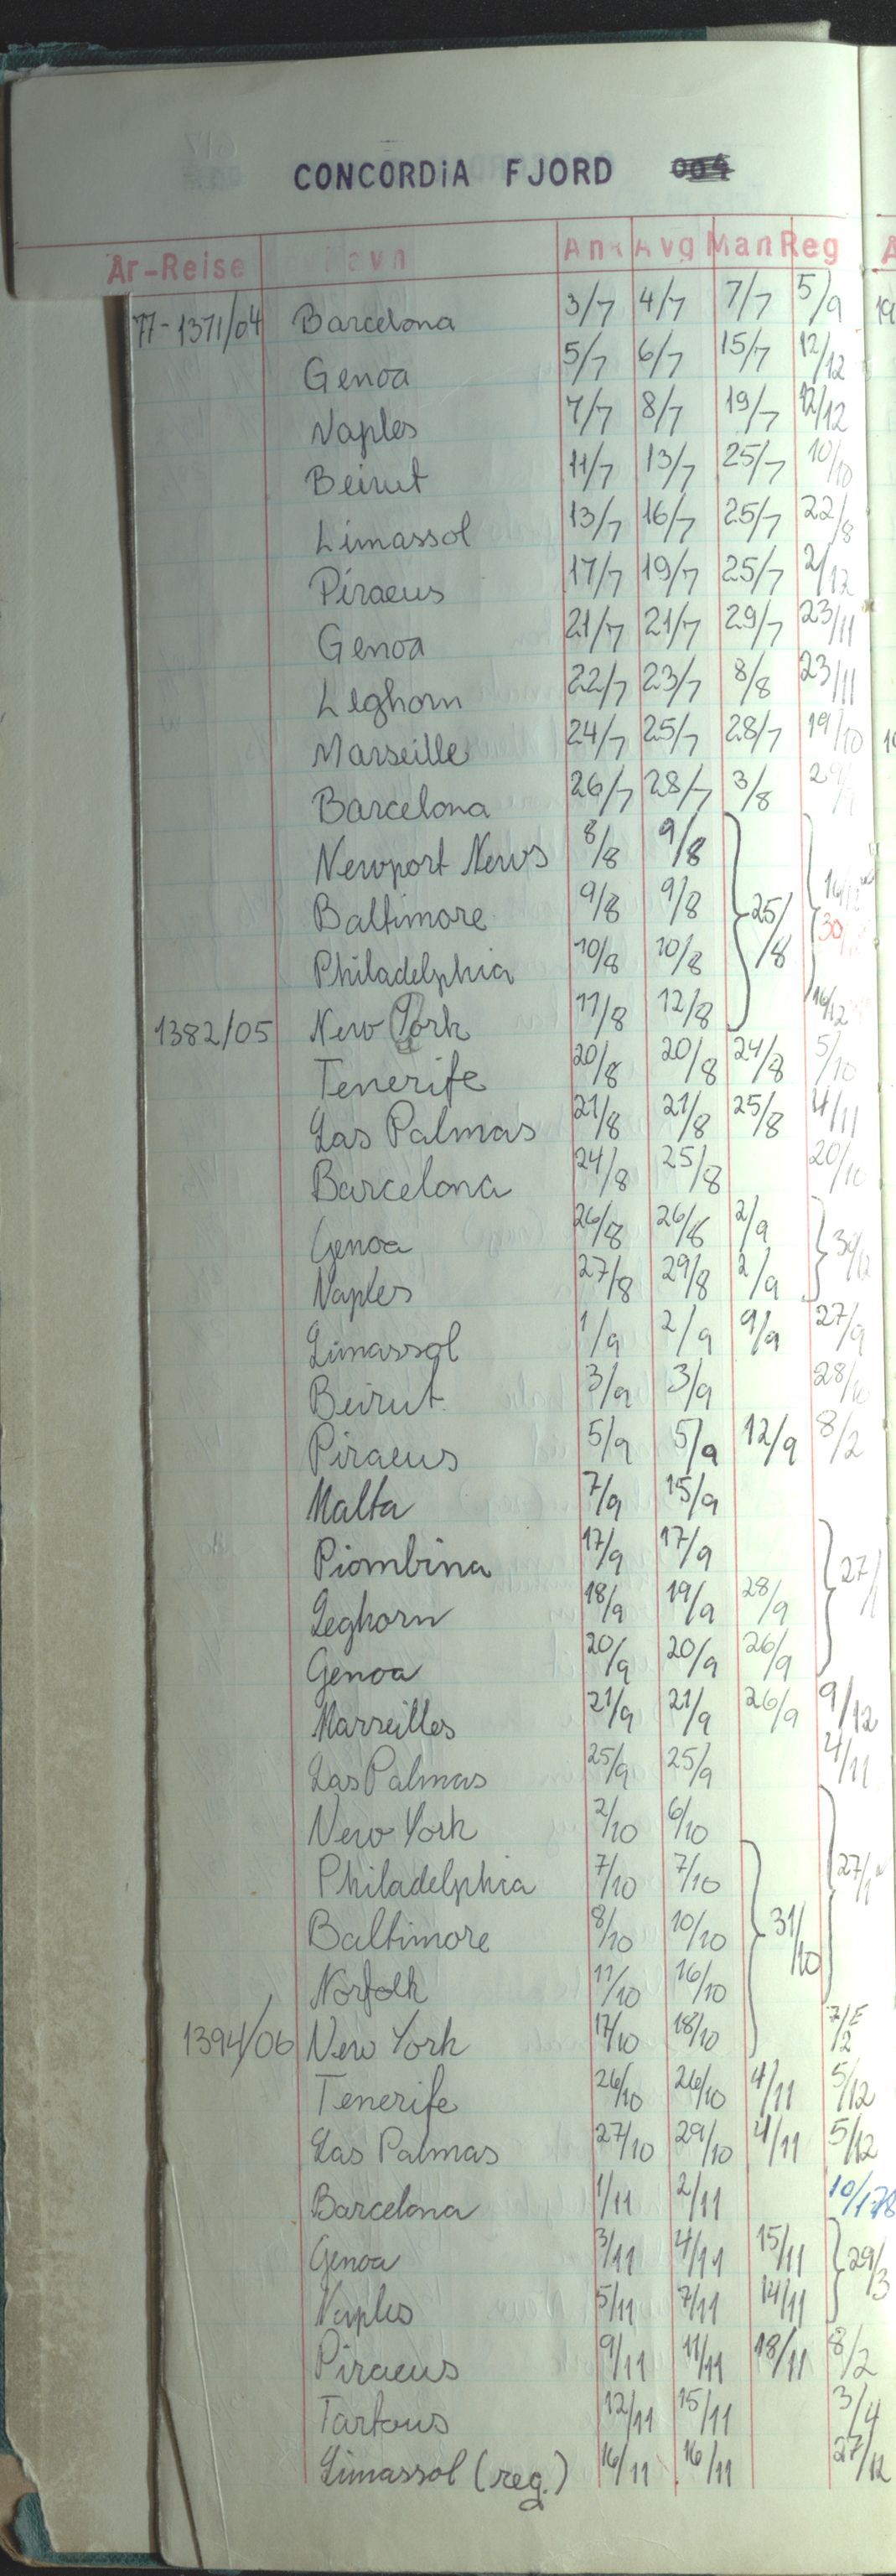 CONCORDIA FJORD 004
År-Reise Navn Ank Avg Man Reg
77-1371/04 Barcelona 3/7 4/7 7/7 5/9
Genoa 5/7 6/7 15/7 12/12
Naples 7/7 8/7 19/7 12/12
Beirut 11/7 13/7 25/7 10/10
Limassol 13/7 16/7 25/7 22/8
Piraeus 17/7 19/7 25/7 2/12
Genoa 21/7 21/7 29/7 23/11
Leghorn 22/7 23/7 8/8 23/11
Marseille 24/7 25/7 28/7 19/10
Barcelona 26/7 28/7 3/8
Newport News 8/8 9/8
Baltimore 9/8 9/8 25/8
Philadelphia 10/8 10/8
1382/05 New York 11/8 12/8 16/12
Tenerife 20/8 20/8 24/8 5/10
Las Palmas 21/8 21/8 25/8 4/11
Barcelona 24/8 25/8 20/10
Genoa 26/8 26/8 2/9
Naples 27/8 29/8 2/9
Limassol 1/9 2/9 9/9 27/9
Beirut 3/9 3/9 28/10
Piraeus 5/9 5/9 12/9 8/2
Malta 7/9 15/9
Piombina 17/9 17/9 27/1
Leghorn 18/9 19/9 28/9
Genoa 20/9 20/9 26/9
Marseilles 21/9 21/9 26/9 9/12
Las Palmas 25/9 25/9 4/11
New York 2/10 6/10
Philadelphia 7/10 7/10 27/1
Baltimore 8/10 10/10 31/10
Norfolk 11/10 16/10
1394/06 New York 17/10 18/10 7/2
Tenerife 26/10 26/10 4/11 5/12
Las Palmas 27/10 29/10 4/11 5/12
Barcelona 1/11 2/11 10/1-78
Genoa 3/11 4/11 15/11 29/3
Naples 5/11 7/11 14/11
Piraeus 9/11 11/11 18/11 8/2
Tartous 12/11 15/11 3/4
Limassol (reg.) 16/11 16/11 27/12